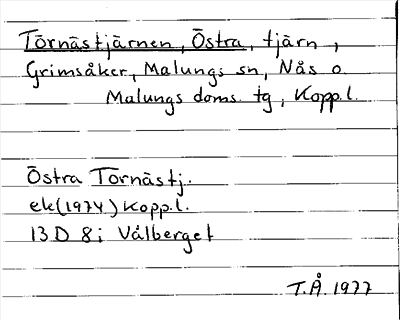 Törnästjärnen, Östra, tjärn,
Grimsåker, Malungs sn, Nås o.
Malungs doms. tg, Kopp.l.
Östra Törnästj.
ek(1974) Kopp.l.
13D 8i Vålberget
T.Å. 1977